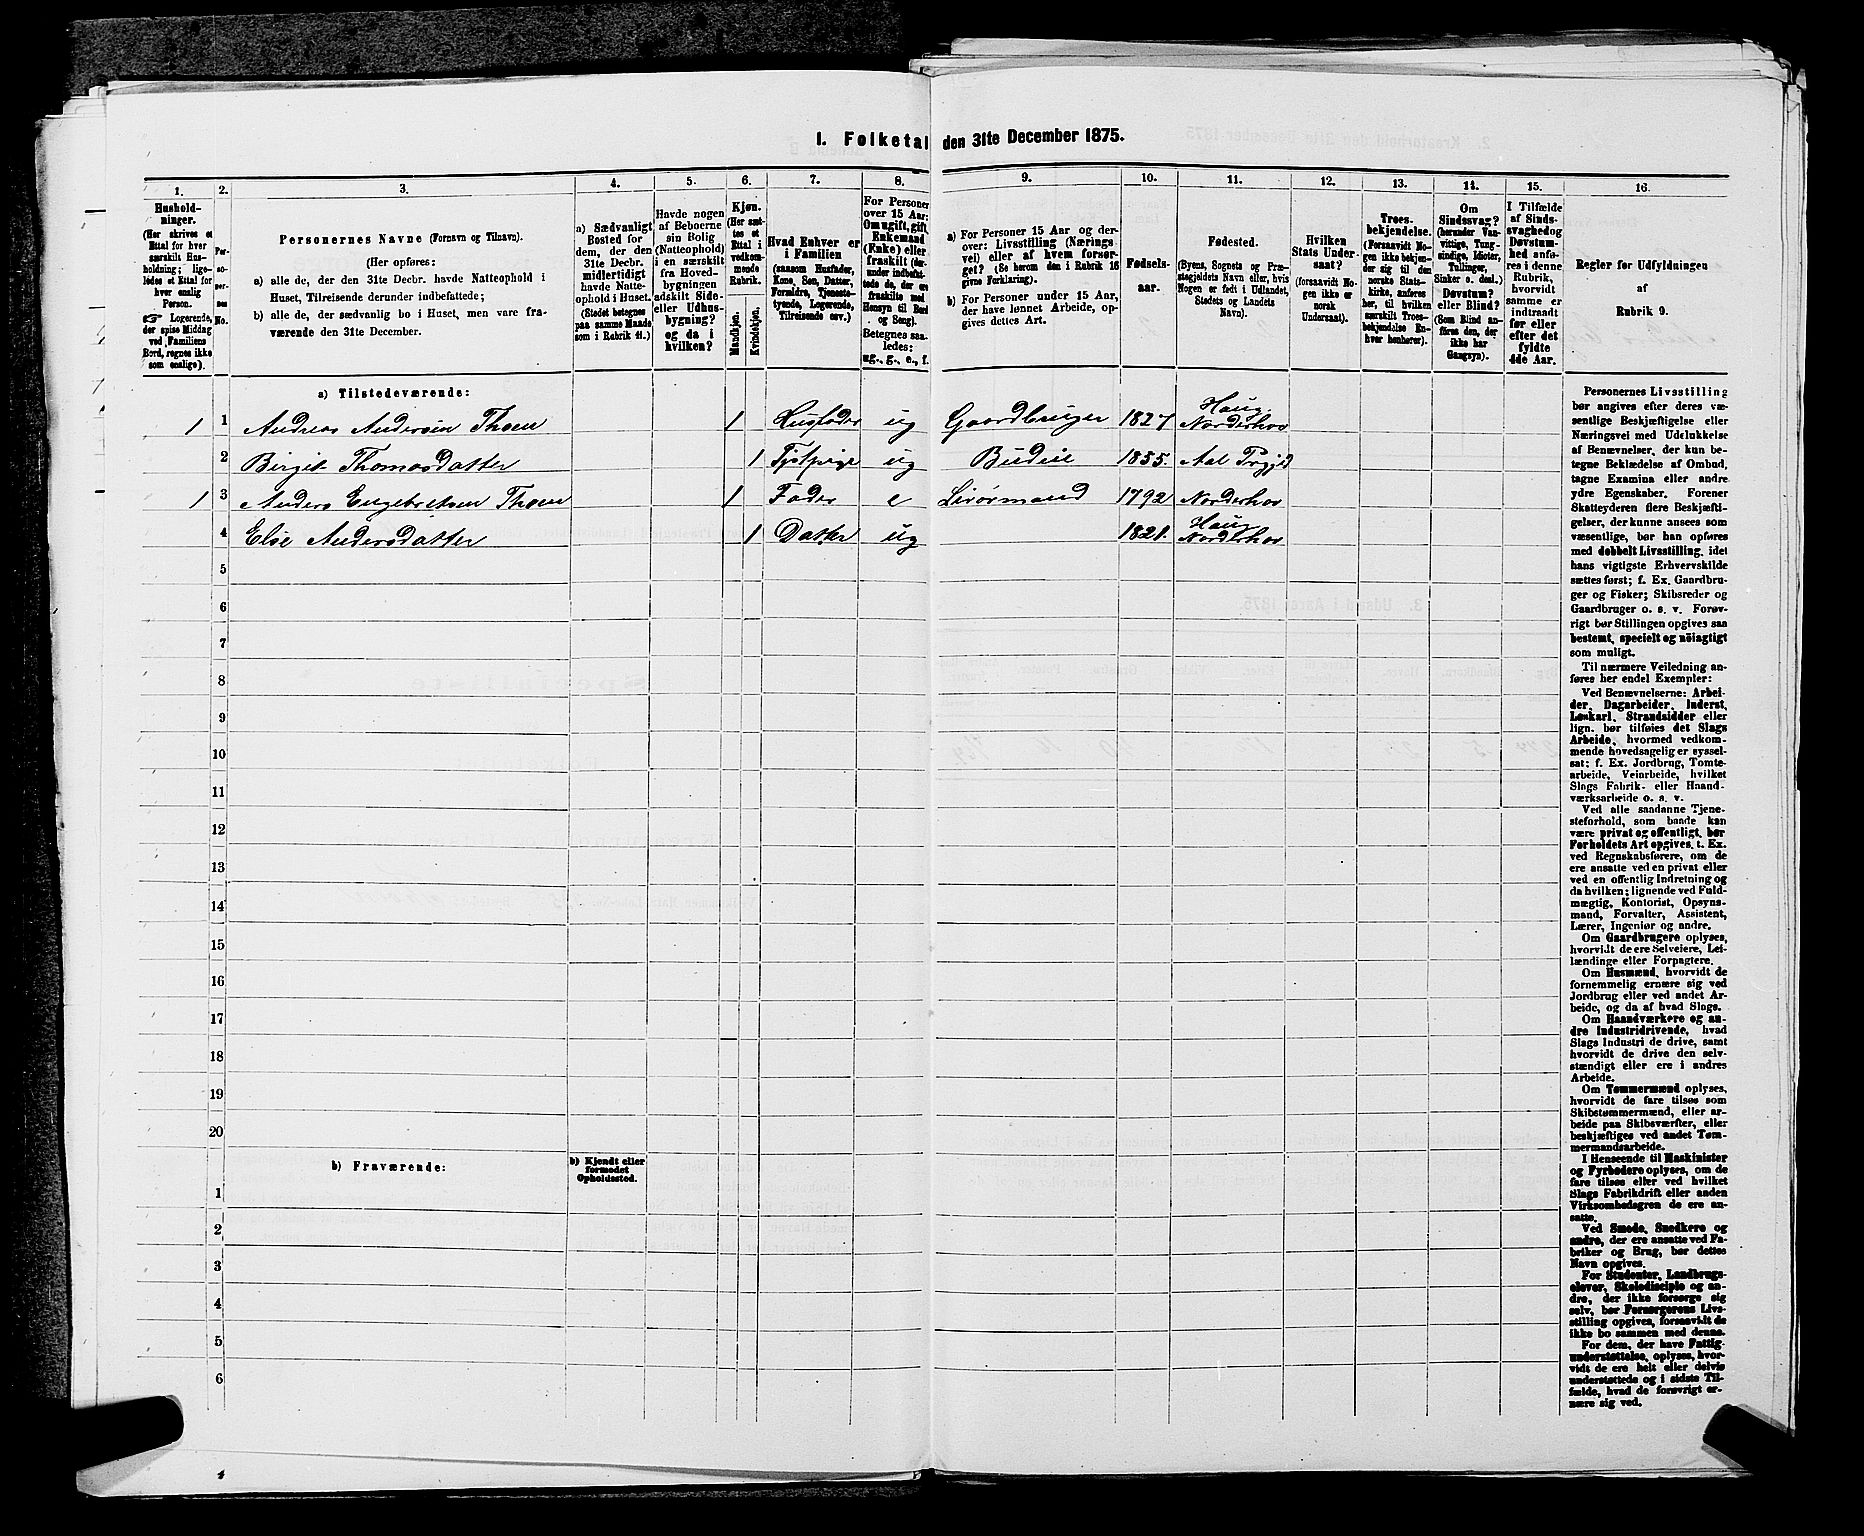 I. Folketal den 31te December 1875.
1. 2. 3. 4. 5. 6. 7. 8. 9. 10. 11. 12. 13. 14. 15. 16.
Hushold-
ninger.
(Her skrives et
Ettal for hver
særskilt Hus-
holdning; lige-
ledes et Ettal for
hver enslig
Person.
☞ Logerende,
der spise Middag
ved Familiens
Bord, regnes ikke
som enslige).
Per-
so-
ner-
nes
No.
Personernes Navne (Fornavn og Tilnavn).
(Her opføres:
a) alle de, der den 31te Decbr. havde Natteophold i
Huset, Tilreisende derunder indbefattede;
b) alle de, der sædvanlig bo i Huset, men vare fra-
værende den 31te December.
a) Sædvanligt
Bosted for
dem, der den
31te Decbr.
midlertidigt
havde Natte-
ophold i Huset.
(Stedet betegnes
paa samme Maade
som i Rubrik 11.)
Havde nogen
af Beboerne
sin Bolig
(Natteophold)
i en særskilt
fra Hoved-
bygningen
adskilt Side-
eller Udhus-
bygning?
og da i
hvilken?
Kjøn.
(Her sæt-
tes et
Ettal i
vedkom-
mende
Rubrik.
Mandkjøn.
Kvindekjøn.
Hvad Enhver er
i Familien
(saasom Husfader,
Kone, Søn, Datter,
Forældre, Tjeneste-
tyende, Logerende,
Tilreisende osv.)
For Personer
over 15 Aar:
Om ugift, gift,
Enkemand
(Enke) eller
fraskilt (der-
under indbefat-
tede de, der ere
fraskilte med
Hensyn til Bord
og Seng).
Betegnes saa-
ledes:
ug., g., e., f.
a) For Personer 15 Aar og der-
over: Livsstilling (Nærings-
vei) eller af hvem forsør-
get? (Se herom den i Rubrik 16
givne Forklaring).
b) For Personer under 15 Aar,
der have lønnet Arbeide, op-
gives dettes Art.
Fødsels-
aar.
Fødested.
(Byens, Sognets og Præ-
stegjeldets Navn eller, hvis
Nogen er født i Udlandet,
Stedets og Landets
Navn).
Hvilken
Stats Under-
saat?
(forsaavidt No-
gen ikke er
norsk
Undersaat).
Troes-
bekjendelse.
(Forsaavidt No-
gen ikke bekjen-
der sig til den
norske Stats-
kirke, anføres
her, til hvilken
særskilt Troes-
bekjendelse En-
hver henhører).
Om
Sindssvag?
(herunder Van-
vittige, Tung-
sindige, Idioter,
Tullinger,
Sinker o. desl.)
Døvstum?
eller Blind?
(Som Blind an-
føres den, der
ikke har
Gangsyn).
I Tilfælde
af Sinds-
svaghed og
Døvstum-
hed anfø-
res i denne
Rubrik,
hvorvidt
samme er
indtraadt
før eller
efter det
fyldte
4de Aar.
Regler for Udfyldningen
af
Rubrik 9.
a) Tilstedeværende:
1 1 Andreas Andersen Thoen 1 Husfader ug Gaardbruger 1827 Haug Norderhov
2 Birgit Thomasdatter 1 Tjstpige ug Budeie 1855. Aal Prgjld
1 3 Anders Engebretsen Thoen 1 Fader e Livørmand 1792 Norderhov
4 Else Andersdatter 1 Datter ug 1821. Haug Norderhov
5
6
7
8
9
10
11
12
13
14
15
16
17
18
19
20
b) Fraværende:
b) Kjendt eller
formodet
Opholdssted.
1
2
3
4
5
6
Personernes Livsstilling
bør angives efter deres væ-
sentlige Beskjæftigelse eller
Næringsvei med Udelukkelse
af Benævnelser, der kun be-
tegne Beklædelse af Ombud,
tagne Examina eller andre
ydre Egenskaber. Forener
Skatteyderen flere Beskjæfti-
gelser, der kunne ansees som
væsentlige, bør han opføres
med dobbelt Livsstilling, idet
hans vigtigste Erhvervskilde
sættes først; f. Ex. Gaardbru-
ger og Fisker; Skibsreder og
Gaardbruger o. s. v. Forøv-
rigt bør Stillingen opgives saa
bestemt, specielt og nöiagtigt
som muligt.
Til nærmere Veiledning an-
føres her endel Exempler:
Ved Benævnelserne: Arbei-
der, Dagarbeider, Inderst,
Løskarl, Strandsidder eller
lign. bør tilføies det Slags
Arbeide, hvormed vedkom-
mende hovedsagelig er syssel-
sat; f. Ex. Jordbrug, Tomte-
arbeide, Veiarbeide, hvilket
Slags Fabrik- eller Haand-
værksarbeide o. s. v.
Ved alle saadanne Tjene-
steforhold, som baade kan
være privat og offentligt, bør
Forholdets Art opgives, t. Ex.
ved Regnskabsførere, om de
ere ansatte ved en privat eller
ved en offentlig Indretning og
da hvilken; lignende ved Fuld-
mægtig, Kontorist, Opsyns-
mand, Forvalter, Assistent,
Lærer, Ingeniør og andre.
Om Gaardbrugere oplyses,
hvorvidt de ere Selveiere, Lei-
lændinge eller Forpagtere.
Om Husmænd, hvorvidt de
fornemmelig ernære sig ved
Jordbrug eller ved andet Ar-
beide, og da af hvad Slags.
Om Haandværkere og an-
dre Industridrivende, hvad
Slags Industri de drive, samt
hvorvidt de drive den selv-
stændigt eller ere i andres
Arbeide.
Om Tømmermænd oplyses,
hvorvidt de fare tilsøs som
Skibstømmermænd, eller ar-
beide paa Skibsværfter, eller
beskjæftiges ved andet Tøm-
mermandsarbeide.
I Henseende til Maskinister
og Fyrbødere oplyses, om de
fare tilsøs eller ved hvilket
Slags Fabrikdrift eller anden
Virksomhedsgren de ere an-
satte.
Ved Smede, Snedkere og
andre, der ere ansatte ved Fa-
briker og Brug, bør dettes
Navn opgives.
For Studenter, Landbrugs-
elever, Skoledisciple og an-
dre, der ikke forsørge sig
selv, bør Forsørgerens Livs-
stilling opgives, forsaavidt de
ikke bo sammen med denne.
For dem, der have Fattig-
understøttelse, oplyses, hvor-
vidt de ere helt eller delvis
understøttede og i sidste Til-
fælde, hvad de forøvrigt er-
nære sig ved.